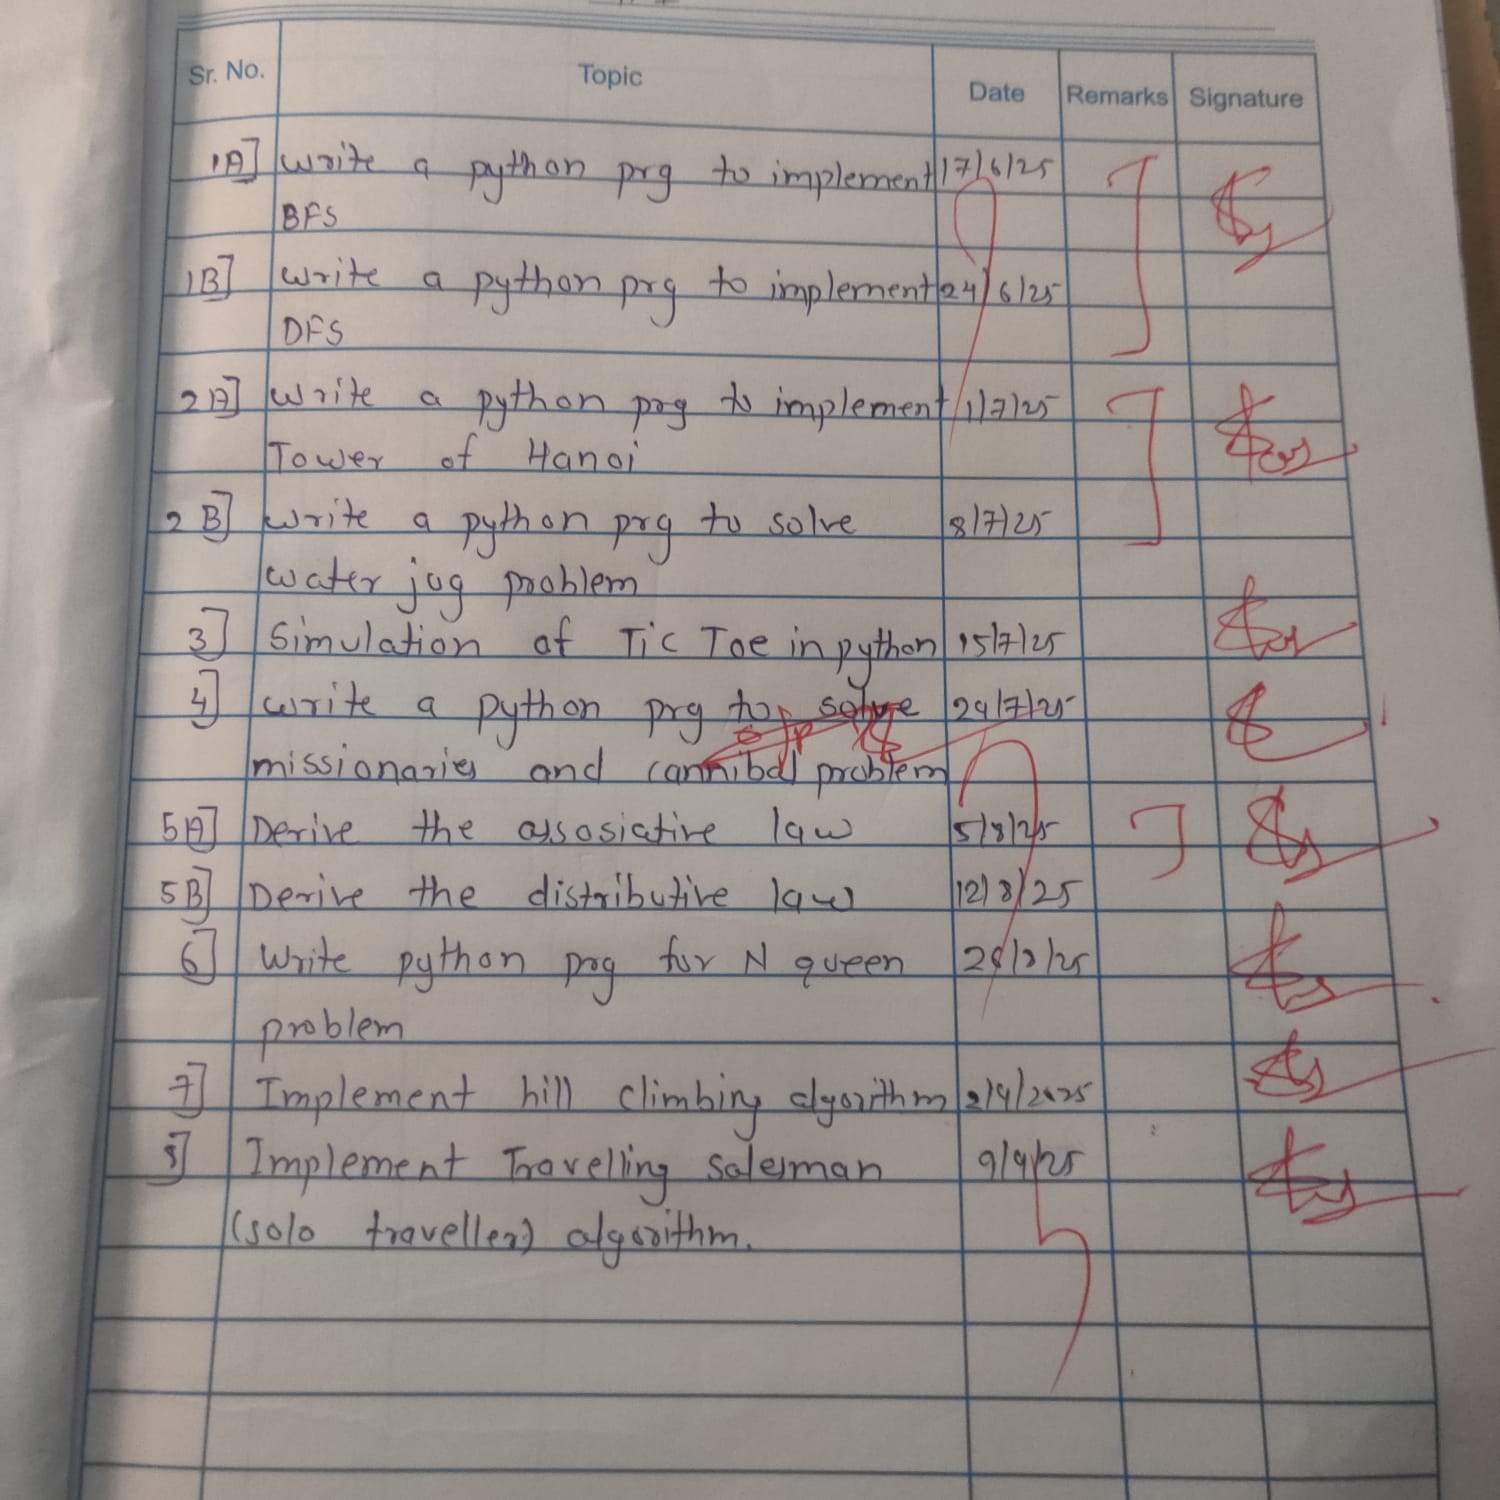 Sr. No. Topic Date Remarks Signature
1A] Write a python prg to implement 17/6/25
BFS
1B] Write a python prg to implement 24/6/25
DFS
2A] Write a python prg to implement 1/7/25
Tower of Hanoi
2B] Write a python prg to solve 8/7/25
water jug problem
3] Simulation of Tic Toe in python 15/7/25
4] Write a python prg to solve 29/7/25
missionaries and cannibal problem
5A] Derive the assosiative law 5/8/25
5B] Derive the distributive law 12/8/25
6] Write python prg for N queen
problem
7] Implement hill climbing algorithm 2/9/2025
8] Implement Travelling salesman 9/9/25
(solo traveller) algorithm.